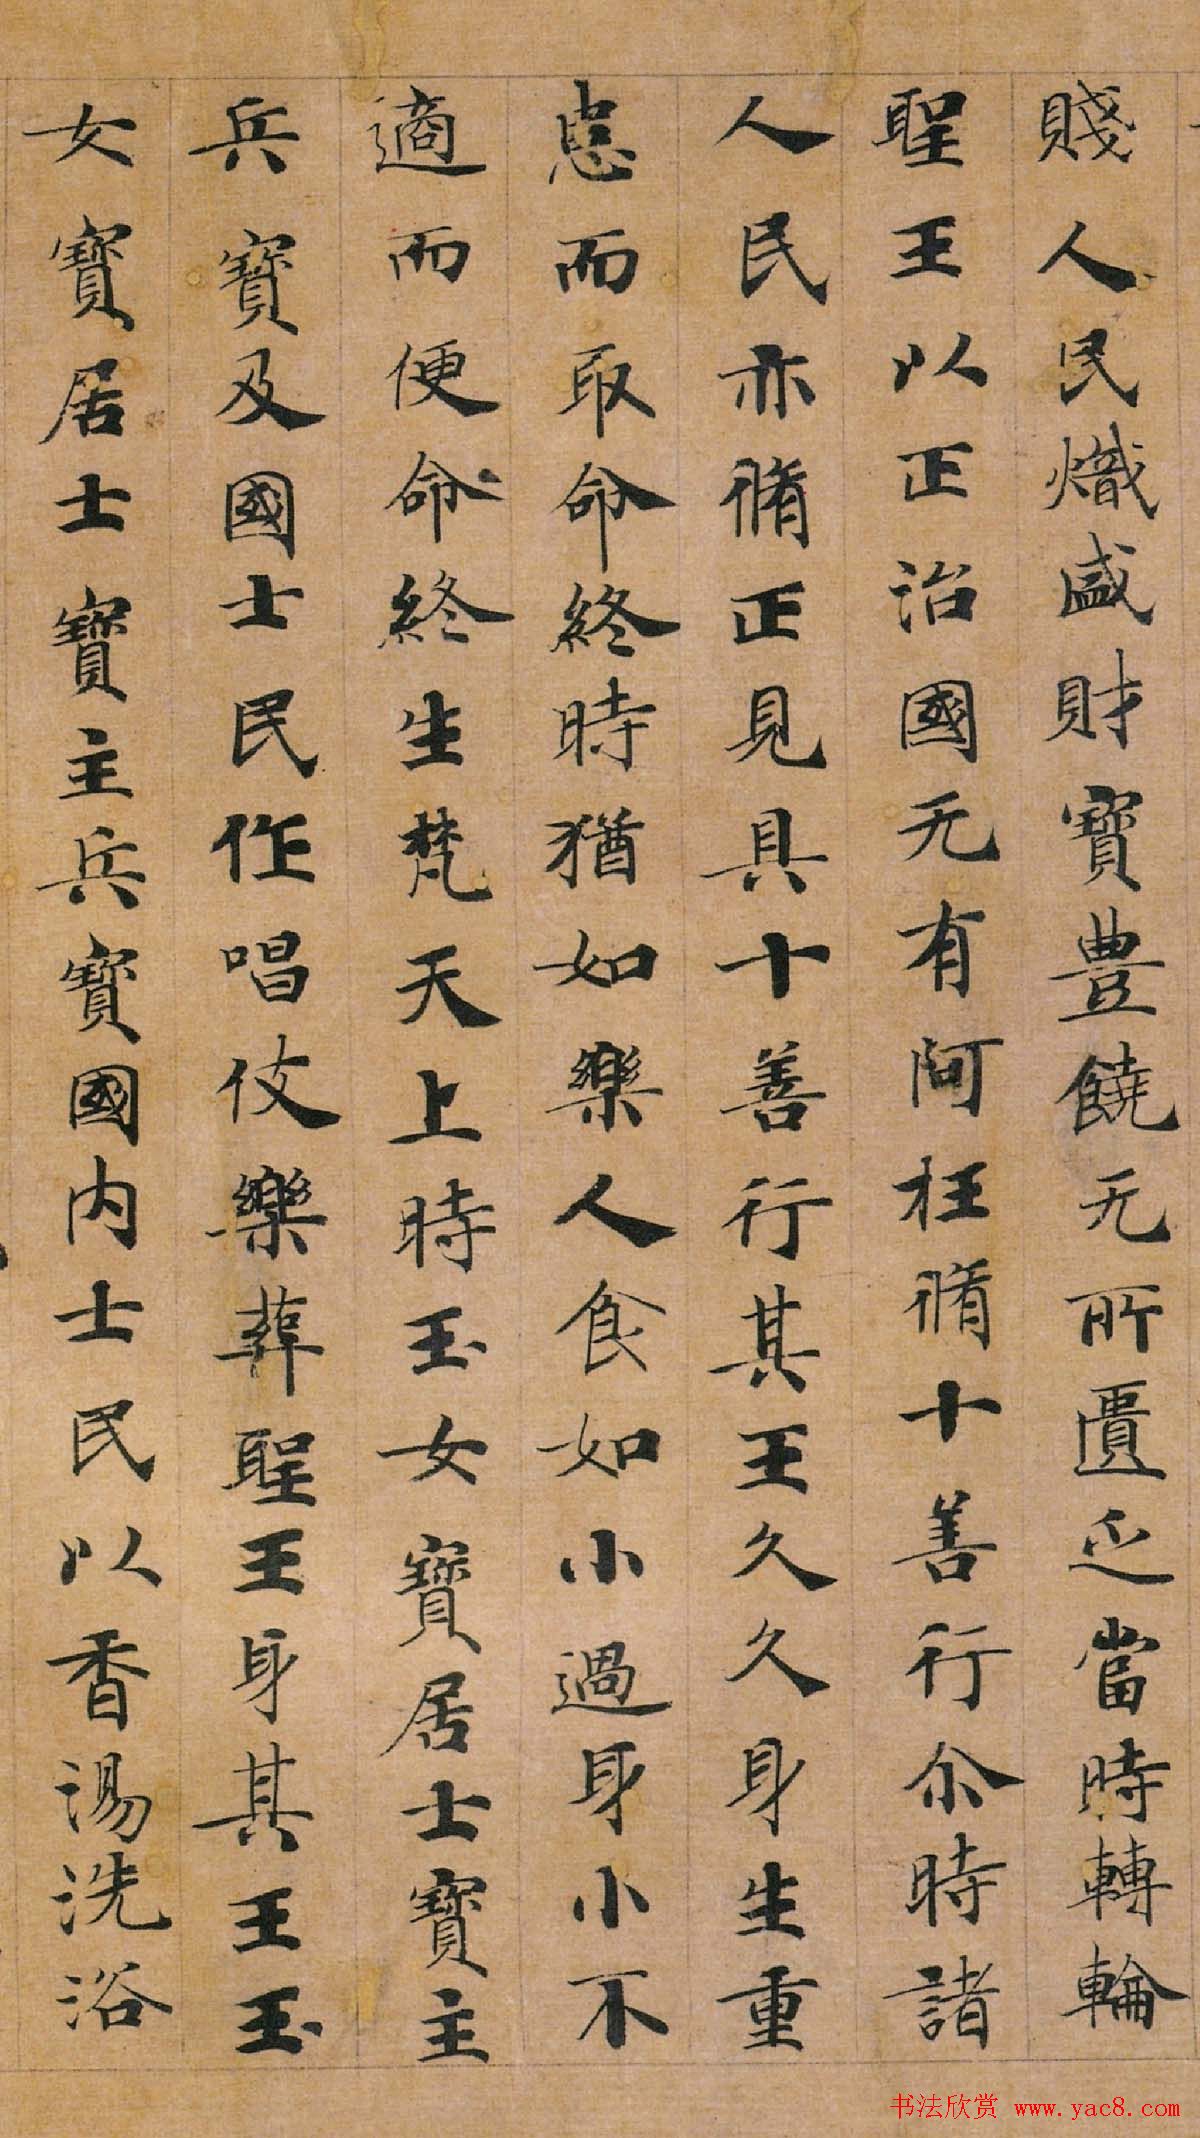 賤人民熾盛財寶豊饒无所匱乏當時轉輪
聖王以正治國无有阿枉脩十善行尒時諸
人民亦脩正見具十善行其王久久身生重
患而取命終時猶如樂人食如小過身小不
適而便命終生梵天上時玉女寶居士寶主
兵寶及國士民作唱伎樂葬聖王身其王玉
女寶居士寶主兵寶國內士民以香湯洗浴
书法欣赏 www.yac8.com